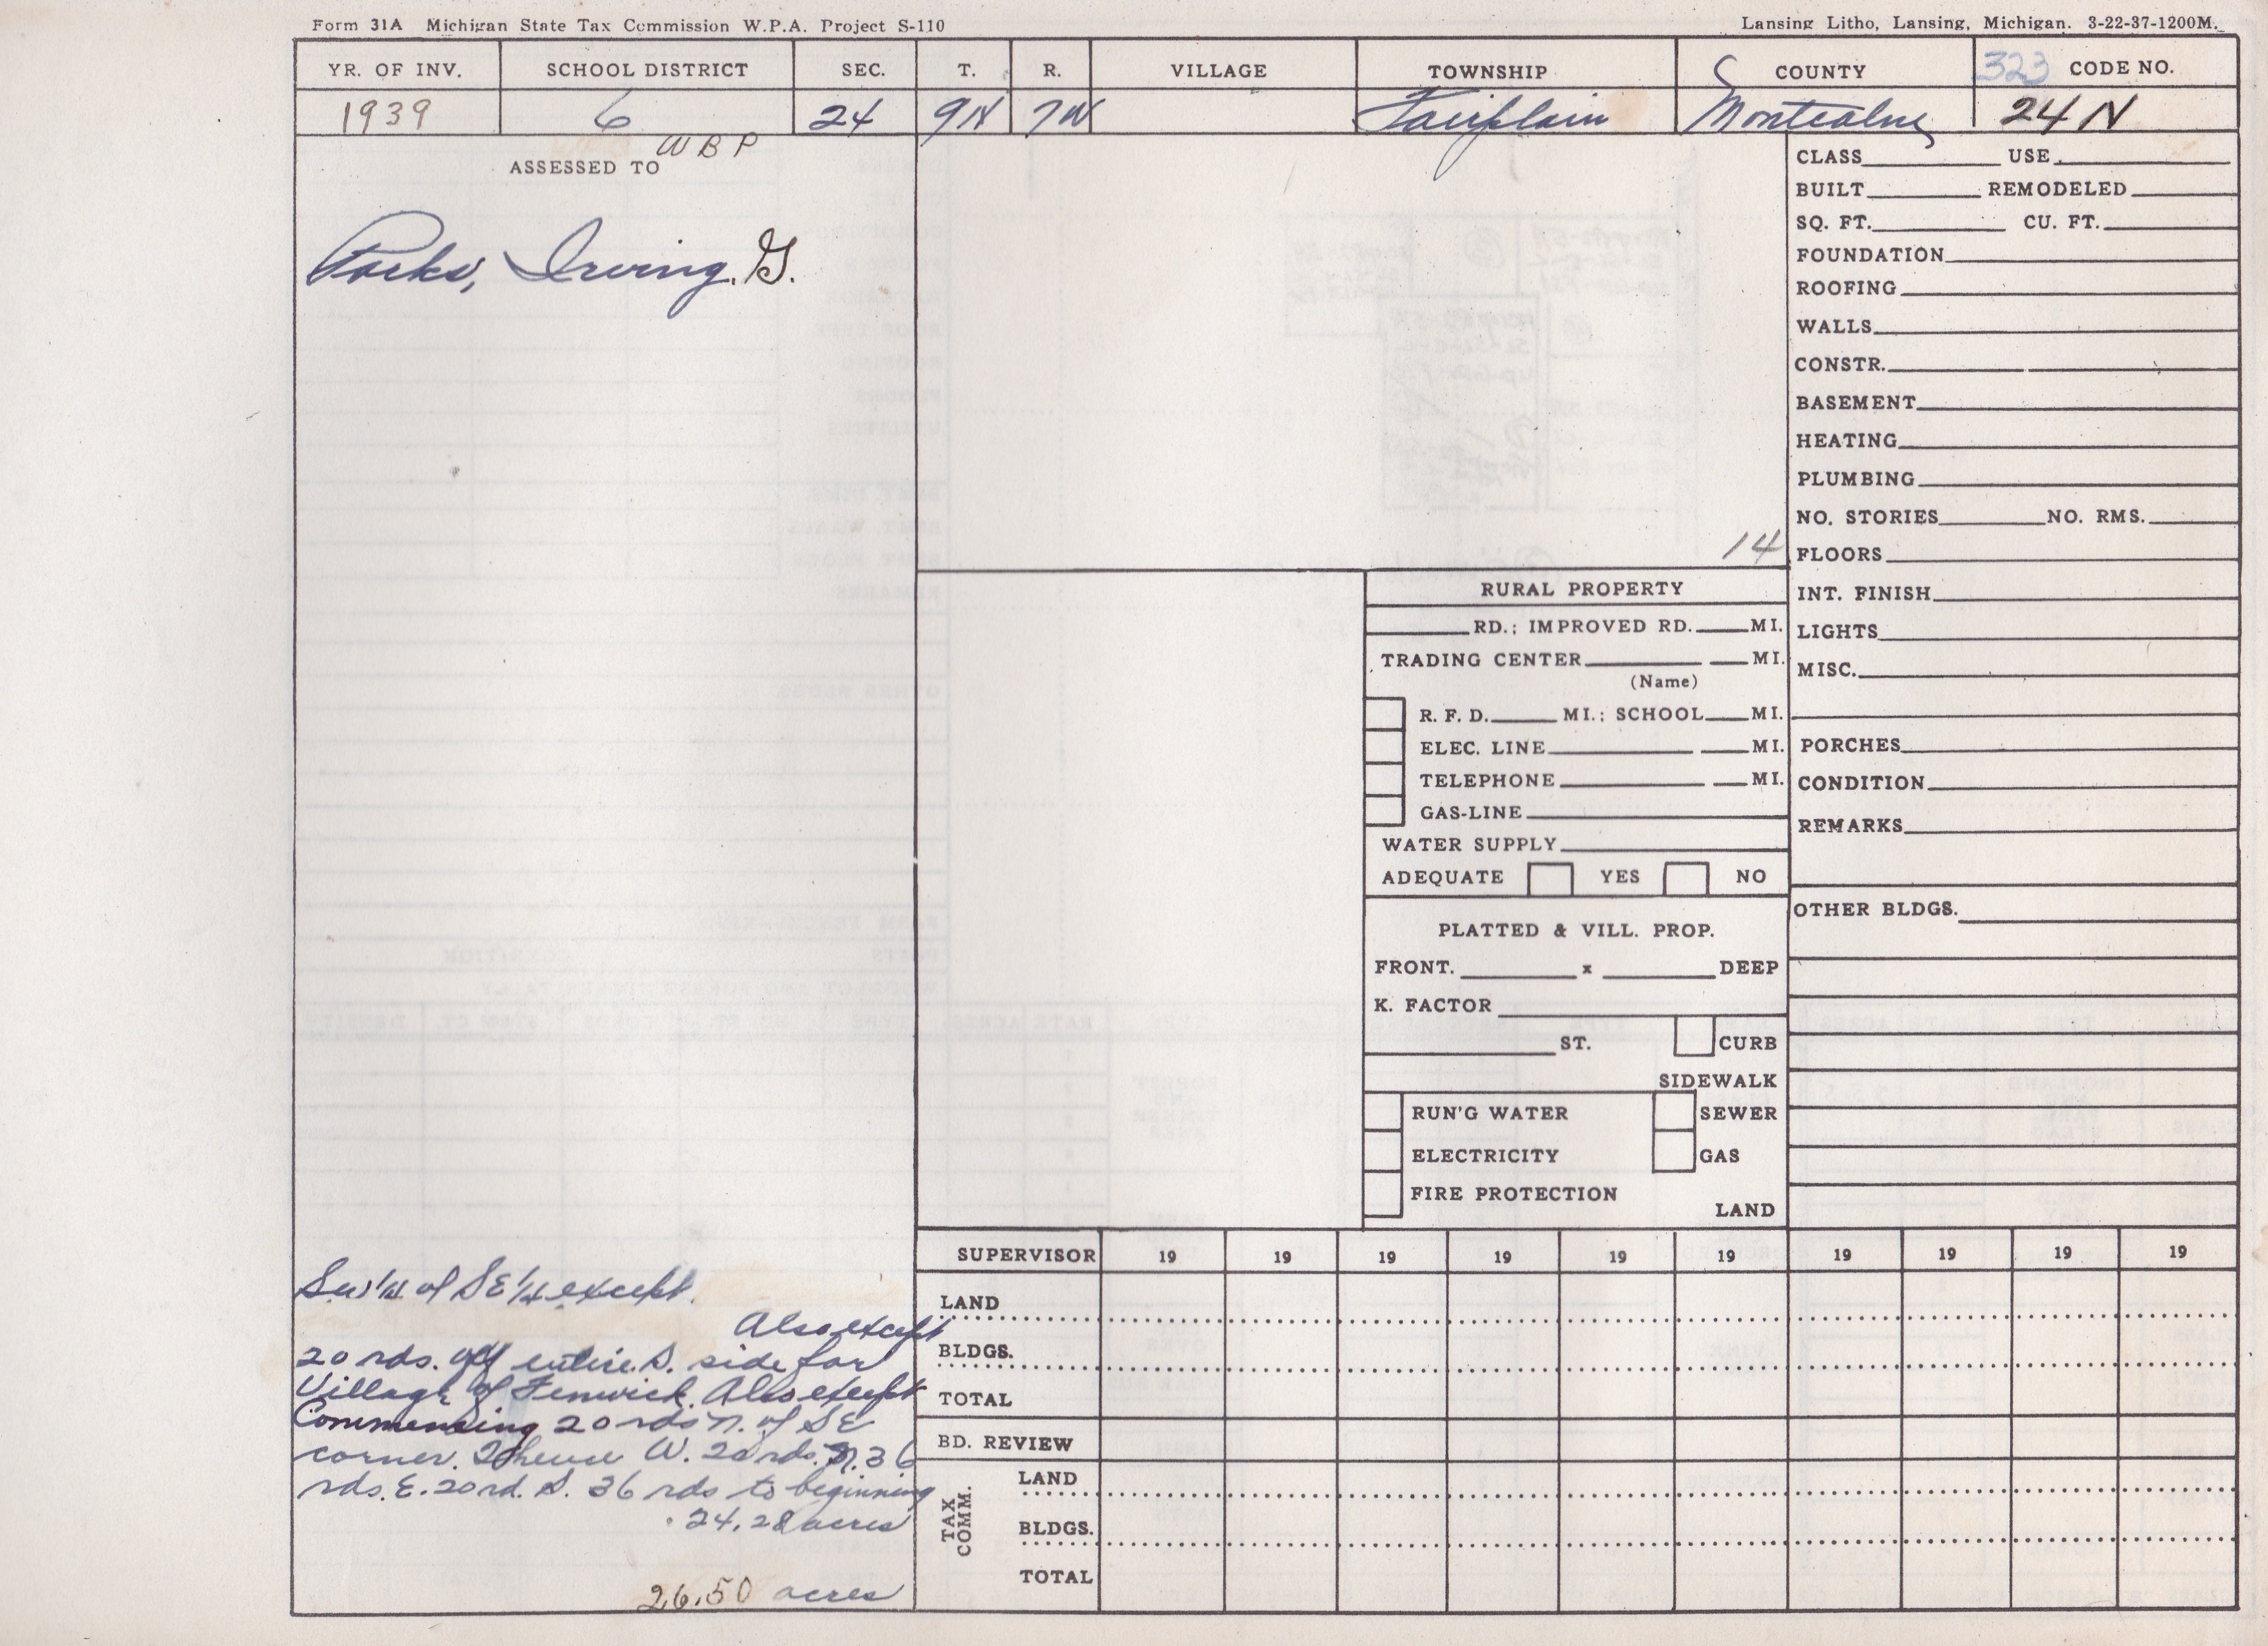 Form 31A Michigan State Tax Commission W.P.A. Project S-110
Lansing Litho, Lansing, Michigan. 3-22-37-1200M.
YR. OF INV. SCHOOL DISTRICT SEC. T. R. VILLAGE TOWNSHIP COUNTY 323 CODE NO.
1939 6 24 9N 7W Fairplain Montcalm 24 N
ASSESSED TO WBP
Parks, Irving. G.
CLASS USE
BUILT REMODELED
SQ. FT. CU. FT.
FOUNDATION
ROOFING
WALLS
CONSTR.
BASEMENT
HEATING
PLUMBING
NO. STORIES NO. RMS.
14
FLOORS
INT. FINISH
LIGHTS
MISC.
PORCHES
CONDITION
REMARKS
OTHER BLDGS.
RURAL PROPERTY
RD.; IMPROVED RD. MI.
TRADING CENTER MI.
(Name)
R. F. D. MI.; SCHOOL MI.
ELEC. LINE MI.
TELEPHONE MI.
GAS-LINE
WATER SUPPLY
ADEQUATE YES NO
PLATTED & VILL. PROP.
FRONT. x DEEP
K. FACTOR
ST. CURB
SIDEWALK
RUN'G WATER SEWER
ELECTRICITY GAS
FIRE PROTECTION
LAND
Sw 1/4 of SE 1/4 except.
Also except
20 rds. off entire S. side for
Village of Fenwick. Also except
Commencing 20 rds N. of SE
corner. Thence W. 20 rds. N. 36
rds. E. 20 rd. S. 36 rds to beginning
24.28 acres
26.50 acres
SUPERVISOR 19 19 19 19 19 19 19 19 19 19
LAND
BLDGS.
TOTAL
BD. REVIEW
TAX COMM.
LAND
BLDGS.
TOTAL